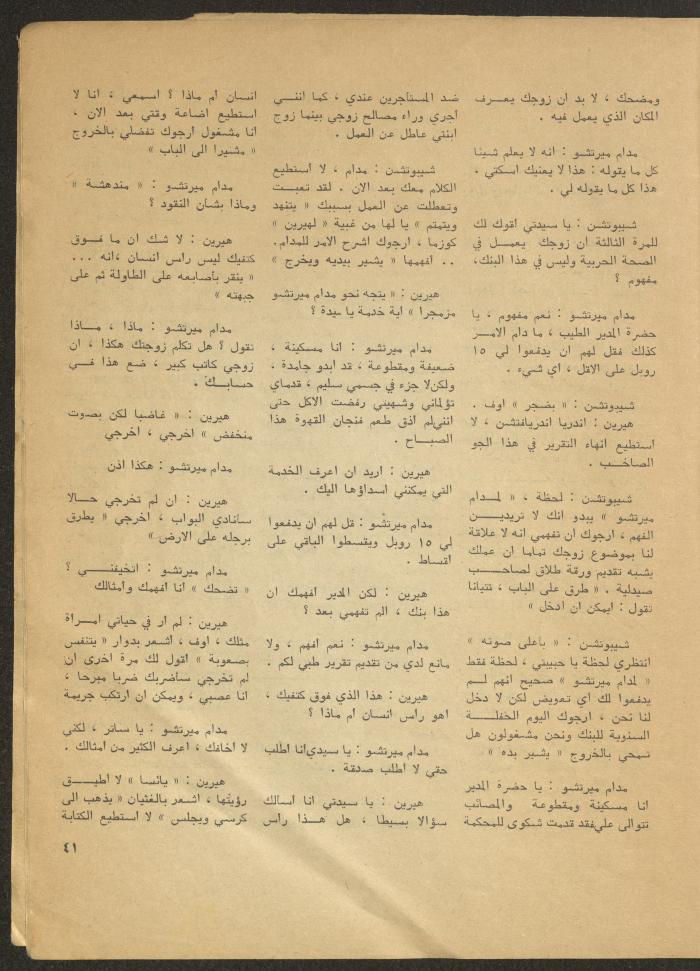 ومضحك ، لا بد ان زوجك يعرف
المكان الذي يعمل فيه .
مدام ميرتشو : انه لا يعلم شيئا
كل ما يقوله : هذا لا يعنيك اسكتي ،
هذا كل ما يقوله لي .
شيبوتشن : يا سيدتي اقوك لك
للمرة الثالثة ان زوجك يعمل في
الصحة الحربية وليس في هذا البنك،
مفهوم ؟
مدام ميرتشو : نعم مفهوم ، يا
حضرة المدير الطيب ، ما دام الامر
كذلك فقل لهم ان يدفعوا لي ١٥
روبل على الاقل ، اي شيء .
شيبوتشن : « بضجر » اوف .
هيرين : اندريا اندريافتشن ، لا
استطيع انهاء التقرير في هذا الجو
الصاخب .
شيبوتشن : لحظة ، « لمدام
ميرتشو » يبدو انك لا تريدين
الفهم ، ارجوك ان تفهمي انه لا علاقة
لنا بموضوع زوجك تماما ان عملك
يشبه تقديم ورقة طلاق لصاحب
صيدلية . « طرق على الباب ، تتيانا
تقول : ايمكن ان ادخل »
شيبوتشن : « بأعلى صوته »
انتظري لحظة يا حبيبتي ، لحظة فقط
« لمدام ميرتشو » صحيح انهم لم
يدفعوا لك اي تعويض لكن لا دخل
لنا نحن ، ارجوك اليوم الحفلة
السنوية للبنك ونحن مشغولون هل
تمحي بالخروج « يشير بده »
مدام ميرتشو : يا حضرة المدير
انا مسكينة ومقطوعة والمصائب
تتوالى علي فقد قدمت شكوى للمحكمة
ضد المستأجرين عندي ، كما انني
اجري وراء مصالح زوجي بينما زوج
ابنتي عاطل عن العمل .
شيبوتشن : مدام ، لا أستطيع
الكلام معك بعد الان . لقد تعبت
وتعطلت عن العمل بسببك « يتنهد
ويتمتم » يا لها من غبية « لهيرين »
كوزما ، ارجوك اشرح الامر للمدام.
.. افهمها « يشير بيديه ويخرج »
هيرين : « يتجه نحو مدام ميرتشو
مزمجرا » اية خدمة يا سيدة ؟
مدام ميرتشو : انا مسكينة ،
ضعيفة ومقطوعة ، قد ابدو جامدة .
ولكن لا جزء في جسمي سليم ، قدماي
تؤلماني وشهيتي رفضت الاكل حتى
انني لم اذق طعم فنجان القهوة هذا
الصباح .
هيرين : اريد ان اعرف الخدمة
التي يمكنني اسداؤها اليك .
مدام ميرتشو : قل لهم ان يدفعوا
لي ١٥ روبل ويقسطوا الباقي على
اقساط .
هيرين : لكن المدير افهمك ان
هذا بنك ، الم تفهمي بعد ؟
مدام ميرتشو : نعم افهم ، ولا
مانع لدي من تقديم تقرير طبي لكم .
هيرين : هذا الذي فوق كتفيك ،
اهو رأس انسان ام ماذا ؟
مدام ميرتشو : يا سيدي انا اطلب
حقي لا اطلب صدقة .
هيرين : يا سيدتي انا اسالك
سؤالا بسيطا ، هل هذا رأس
انسان ام ماذا ؟ اسمعي ، انا لا
استطيع اضاعة وقتي بعد الان ،
انا مشغول ارجوك تفضلي بالخروج
« مشيرا الى الباب »
مدام ميرتشو : « مندهشة »
وماذا بشأن النقود ؟
هيرين : لا شك ان ما فوق
كتفيك ليس راس انسان ،انه ...
« ينقر بأصابعه على الطاولة ثم على
جبهته »
مدام ميرتشو : ماذا ، ماذا
تقول ؟ هل تكلم زوجتك هكذا ، ان
زوجي كاتب كبير ، ضع هذا في
حسابك .
هيرين : « غاضبا لكن بصوت
منخفض » اخرجي ، اخرجي
مدام ميرتشو : هكذا اذن
هيرين : ان لم تخرجي حالا
سأنادي البواب ، اخرجي « يطرق
برجله على الارض »
مدام ميرتشو : اتخيفني ؟
« تضحك » انا افهمك وأمثالك
هيرين : لم ار في حياتي امرأة
مثلك ، اوف ، اشعر بدوار « يتنفس
بصعوبة » اقول لك مرة اخرى ان
لم تخرجي سأضربك ضربا مبرحا ،
انا عصبي ، ويمكن ان ارتكب جريمة
مدام ميرتشو : يا ساتر ، لكني
لا اخافك ، اعرف الكثير من امثالك .
هيرين : « يائسا » لا اطيق
رؤيتها ، اشعر بالغثيان « يذهب الى
كرسي ويجلس » لا استطيع الكتابة
٤١